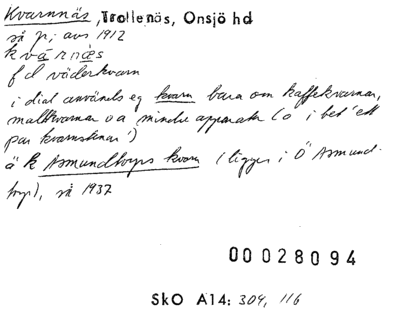 Kvarnnäs, Trollenös, Onsjö hd
så pj; avs 1912
kvárnäs
f d väderkvarn
i dial används eg kvarn bara om kaffekvarnar,
maltkvarnar o a mindre apparater (o i bet 'ett
par kvarnstenar')
ä k Asmundtorps kvarn (ligger i Ö Asmund-
torp), så 1937
00028094
SkO A14: 304, 116